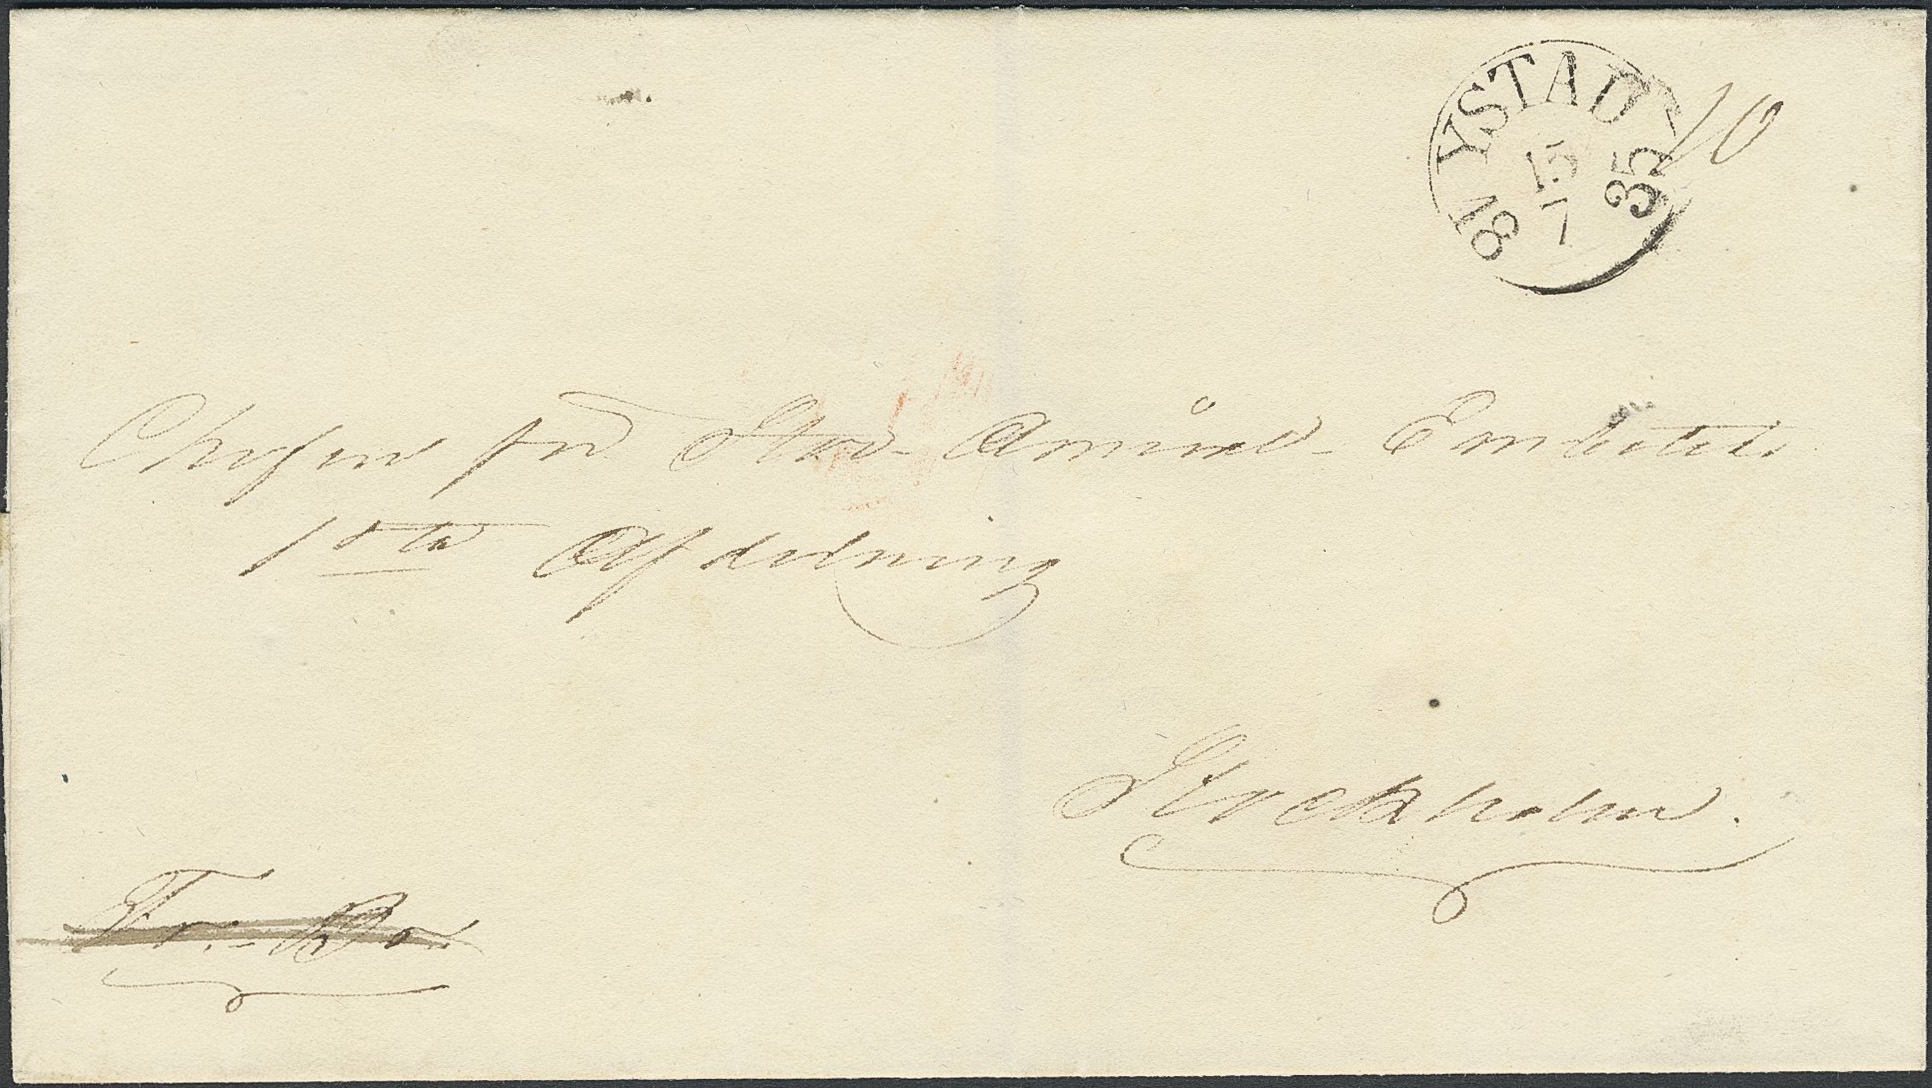 YSTAD
15
7
1835
10
Chefen för Stor-Amiral-Embetets
1sta Afdelning
Stockholm.